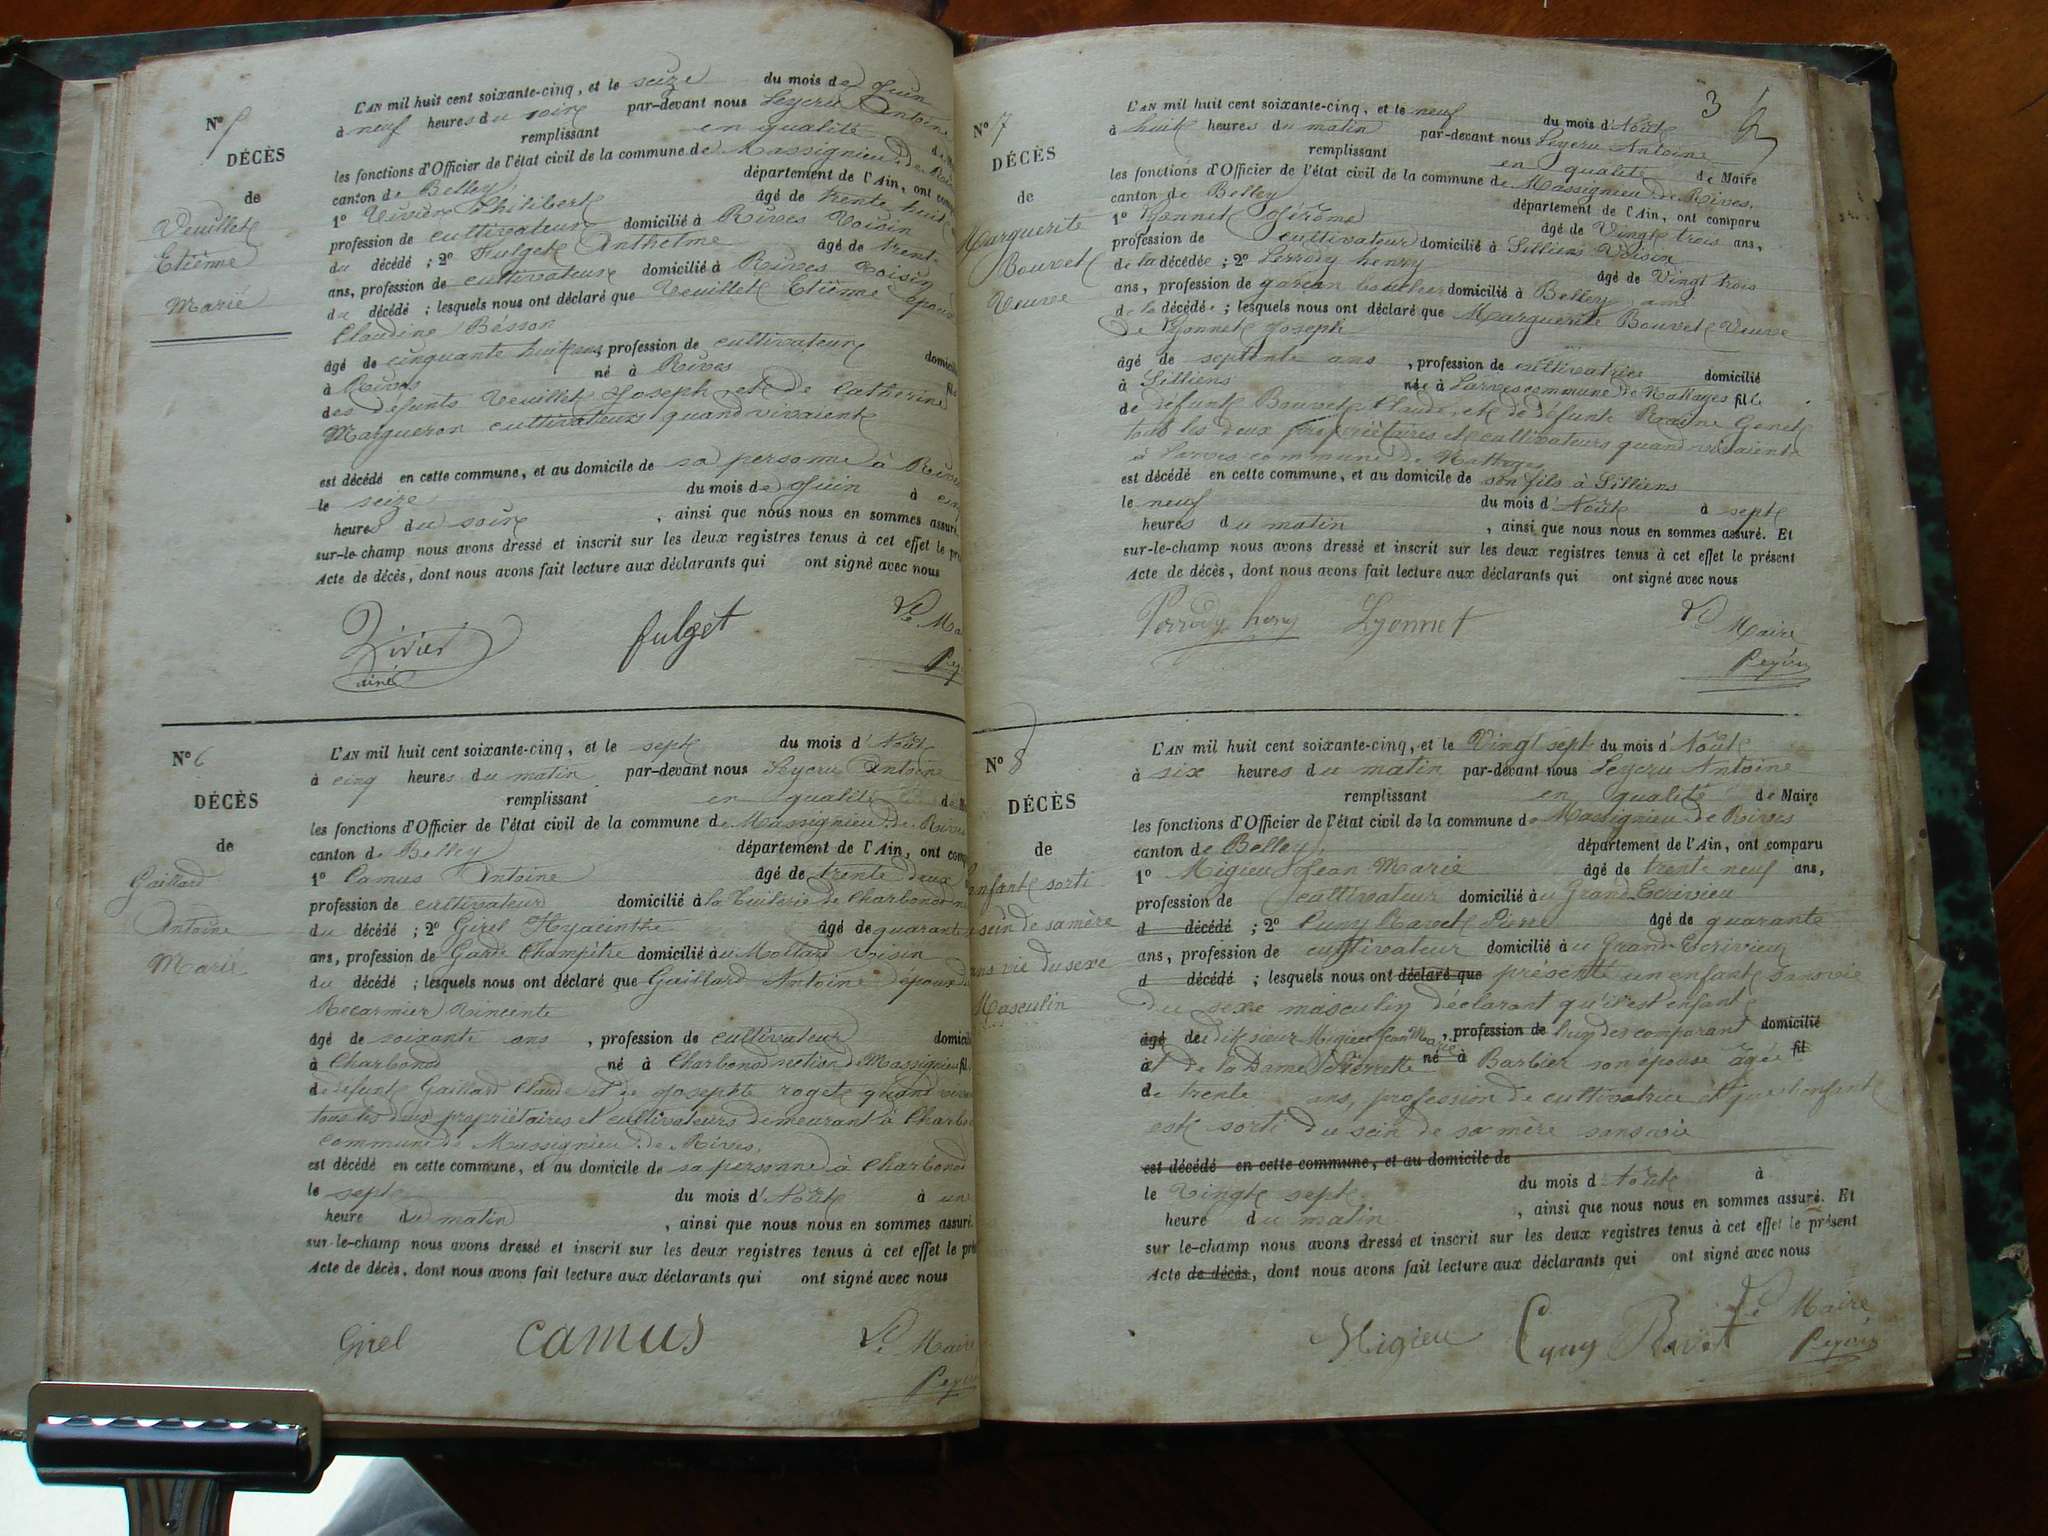 N° 5
DÉCÈS
de
Veuillet
Etienne
Marié
L'AN mil huit cent soixante-cinq, et le seize du mois de Juin
à neuf heures du soir par-devant nous Antoine
remplissant en qualité
les fonctions d'Officier de l'état civil de la commune de Massignieu de
canton de Belley département de l'Ain, ont
1° Philibert âgé de trente huit
profession de cultivateur domicilié à Rives Voisin
du décédé ; 2° Fulget Anthelme âgé de
ans, profession de cultivateur domicilié à Rives Voisin
du décédé ; lesquels nous ont déclaré que Veuillet Etienne époux
Claudine Bésson
âgé de cinquante huit ans, profession de cultivateur
à Rives né à Rives
des défunts Veuillet Joseph et de Catherine
Margueron cultivateurs quand vivaient
est décédé en cette commune, et au domicile de sa personne à Rives
le seize du mois de Juin à
heures du soir, ainsi que nous nous en sommes assuré.
sur-le-champ nous avons dressé et inscrit sur les deux registres tenus à cet effet le
Acte de décès, dont nous avons fait lecture aux déclarants qui ont signé avec nous
fulget
Le
N° 6
DÉCÈS
de
Gaillard
Antoine
Marié
L'AN mil huit cent soixante-cinq, et le sept du mois d'Août
à cinq heures du matin par-devant nous Antoine
remplissant en qualité
les fonctions d'Officier de l'état civil de la commune de Massignieu de Rives
canton de Belley département de l'Ain, ont
1° Camus Antoine âgé de trente deux
profession de cultivateur domicilié à la Tuilerie de Charbonod
du décédé ; 2° Girel Hyacinthe âgé de quarante
ans, profession de Garde Champêtre domicilié au Mollard voisin
du décédé ; lesquels nous ont déclaré que Gaillard Antoine époux
âgé de soixante ans, profession de cultivateur
à Charbonod né à Charbonod section de Massignieu
de défunt Gaillard Claude et de Josephte roget quand
tous les deux propriétaires et cultivateurs demeurant à
commune de Massignieu de Rives,
est décédé en cette commune, et au domicile de sa personne à Charbonod
le sept du mois d'Août à une
heure du matin, ainsi que nous nous en sommes assuré.
sur-le-champ nous avons dressé et inscrit sur les deux registres tenus à cet effet le
Acte de décès, dont nous avons fait lecture aux déclarants qui ont signé avec nous
Girel camus Le Maire
3
N° 7
DÉCÈS
de
Marguerite
Bouvet
Veuve
L'AN mil huit cent soixante-cinq, et le neuf du mois d'Août
à huit heures du matin par-devant nous Antoine
remplissant en qualité de Maire
les fonctions d'Officier de l'état civil de la commune de Massignieu de Rives,
canton de Belley département de l'Ain, ont comparu
1° Lyonnet Jérôme âgé de Vingt trois ans,
profession de cultivateur domicilié à Silliens Voisin
de la décédée ; 2° Perrody henry âgé de Vingt trois
ans, profession de garçon boucher domicilié à Belley ami
de la décédée ; lesquels nous ont déclaré que Marguerite Bouvet Veuve
de Lyonnet Joseph
âgé de septente ans, profession de cultivatrice domicilié
à Silliens née à commune de Nattages fille
de défunt Bouvet Claude, et de défunte Genet
tous les deux propriétaires et cultivateurs quand vivaient
à commune de Nattages
est décédé en cette commune, et au domicile de son fils à Silliens
le neuf du mois d'Août à sept
heures du matin, ainsi que nous nous en sommes assuré. Et
sur-le-champ nous avons dressé et inscrit sur les deux registres tenus à cet effet le présent
Acte de décès, dont nous avons fait lecture aux déclarants qui ont signé avec nous
Perrody heny Lyonnet Le Maire
N° 8
DÉCÈS
de
enfant sorti
sein de sa mère
sans vie du sexe
Masculin
L'AN mil huit cent soixante-cinq, et le Vingt sept du mois d'Août
à six heures du matin par-devant nous Antoine
remplissant en qualité de Maire
les fonctions d'Officier de l'état civil de la commune de Massignieu de Rives
canton de Belley département de l'Ain, ont comparu
1° Migieu Jean Marie âgé de trente neuf ans,
profession de cultivateur domicilié au Grand
d décédé ; 2° Cuny Ravet Pierre âgé de quarante
ans, profession de cultivateur domicilié au Grand
d décédé ; lesquels nous ont déclaré que présenté un enfant sans vie
du sexe masculin déclarant qu'il est enfant
âgé de dit sieur Migieu Jean Marie, profession de l'un des comparant domicilié
à et de la Dame Pierrette né à Barbier son épouse âgée fil
de trente ans, profession de cultivatrice et que l'enfant
est sorti du sein de sa mère sans vie
est décédé en cette commune, et au domicile de
le Vingt sept du mois d'Août à
heure du matin, ainsi que nous nous en sommes assuré. Et
sur le-champ nous avons dressé et inscrit sur les deux registres tenus à cet effet le présent
Acte de décès, dont nous avons fait lecture aux déclarants qui ont signé avec nous
Migieu Cuny Ravet Le Maire